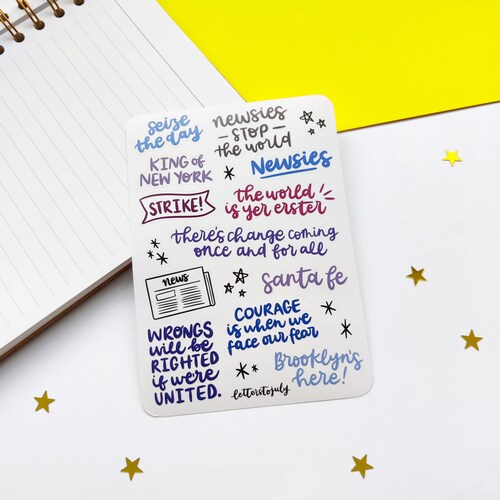 seize
the day
newsies
- STOP -
the world
KING of
NEW YORK
Newsies
STRIKE!
the world
is yer erster
there's change coming
once and for all
news
santa fe
COURAGE
is when we
face our fear
WRONGS
will be
RIGHTED
if we're
UNITED.
Brooklyn's
here!
-letterstojuly